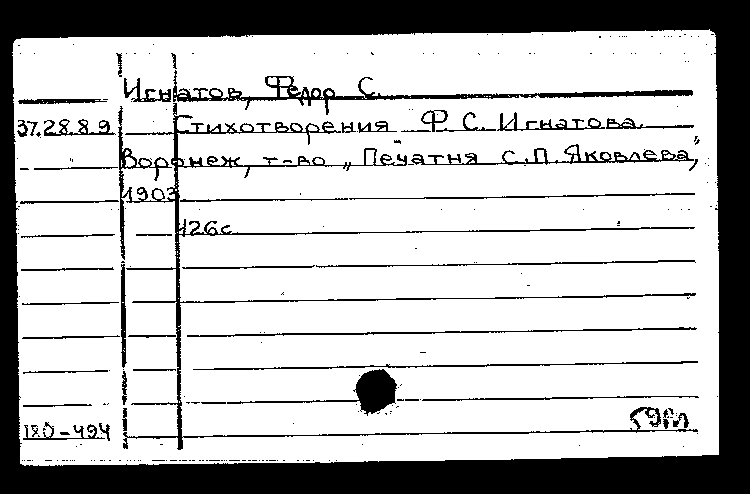 Игнатов, Федор С.
37.28.8.9 Стихотворения Ф. С. Игнатова.
Воронеж, т-во „Печатня С.П. Яковлева",
1903
126с
180-494